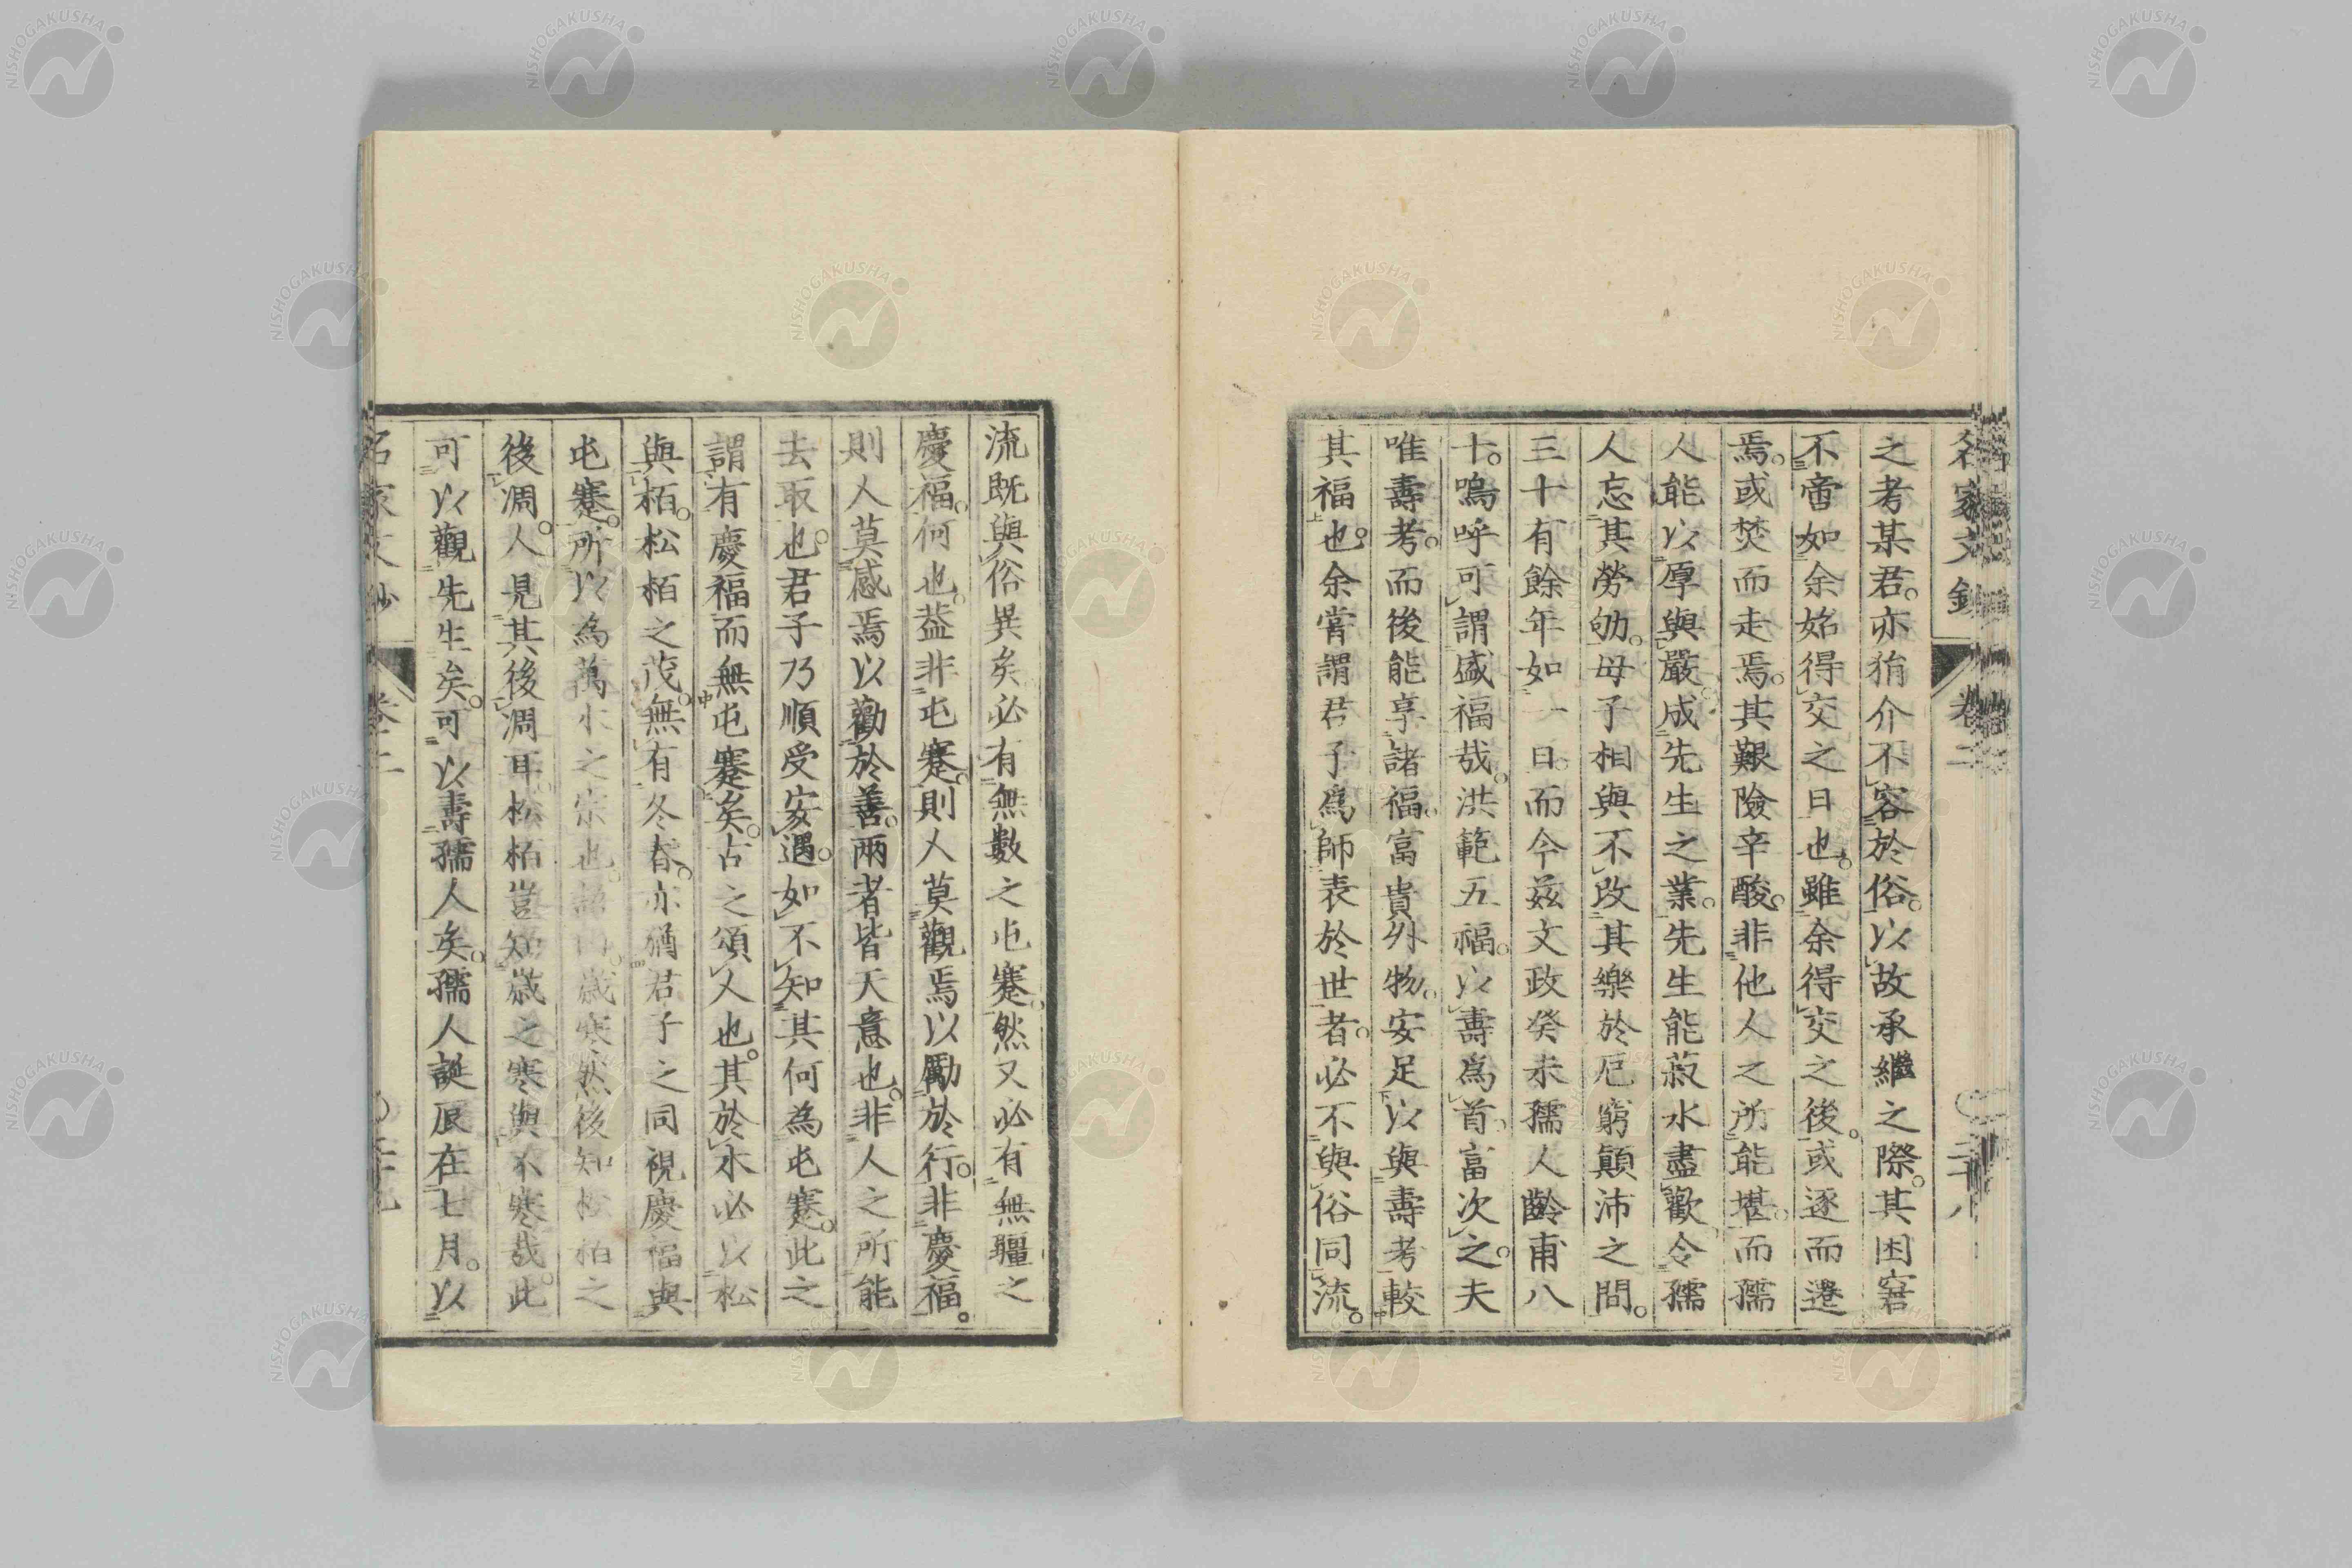 名家文鈔　卷二　二十八
之考某君。亦狷介不容於俗。以故承繼之際。其困窘
不啻如余始得交之日也。雖余得交之後。或逐而遷
焉。或焚而走焉。其艱險辛酸。非他人之所能堪。而孺
人能以厚與嚴成先生之業。先生能菽水盡歡。令孺
人忘其勞劬。母子相與不改其樂於厄窮顛沛之間。
三十有餘年如一日。而今茲文政癸未孺人齡甫八
十。嗚呼可謂盛福哉。洪範五福。以壽爲首。富次之。夫
唯壽考。而後能享諸福。富貴外物。安足以與壽考較
其福也。余嘗謂君子爲師表於世者。必不與俗同流。
流既與俗異矣必有無數之屯蹇。然又必有無疆之
慶福。何也。蓋非屯蹇。則人莫觀焉以勵於行。非慶福。
則人莫感焉以勸於善。兩者皆天意也。非人之所能
去取也。君子乃順受安遇。如不知其何為屯蹇。此之
謂有慶福而無屯蹇矣。古之頌人也。其於木必以松
與栢。松栢之茂。無有冬春。亦猶君子之同視慶福與
屯蹇。所以為萬木之宗也。語曰。歲寒然後知松栢之
後凋。人見其後凋耳。松栢豈知歲之寒與不寒哉。此
可以觀先生矣。可以壽孺人矣。孺人誕辰在七月。以
名家文鈔　卷二
NISHOGAKUSHA